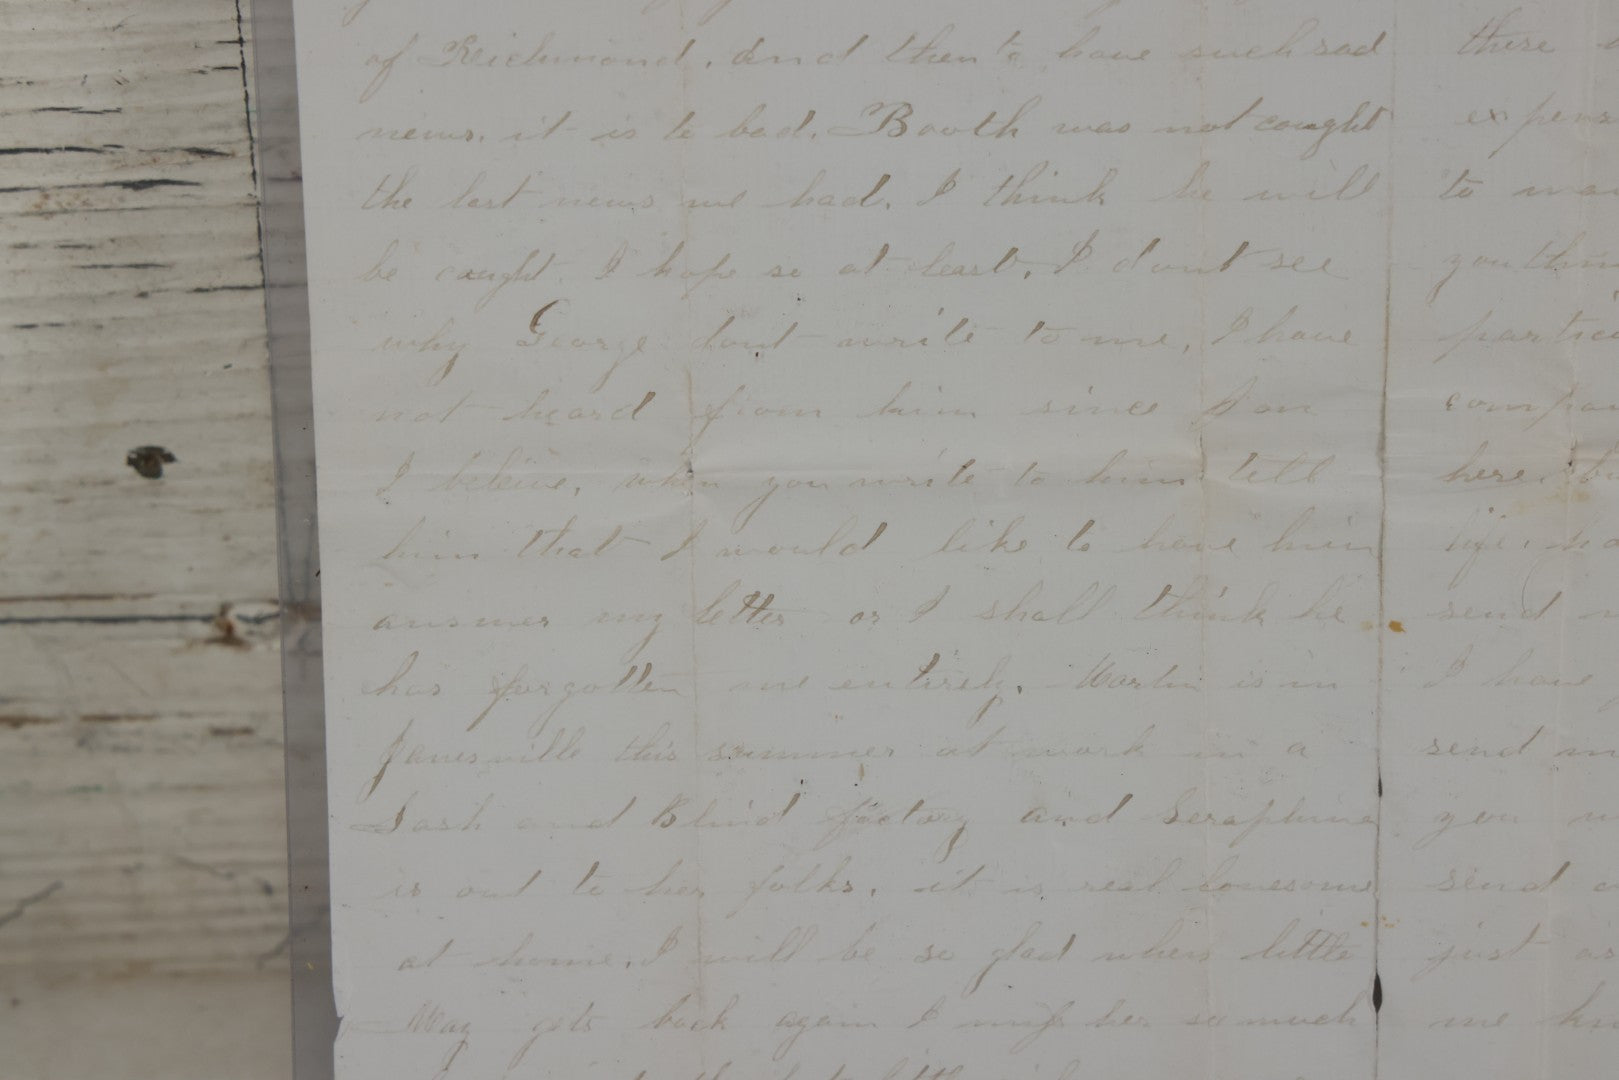 of Reichmond. And then to have such sad
news. it is to bad. Booth was not caught
the last news we had. I think he will
be caught. I hope so at least. I dont see
why George dont write to me, I have
not heard from him since Jan
I beleive, when you write to him tell
him that I would like to have him
answer my letter or I shall think he
has forgotten me entirely. Martin is in
Janesville this summer at work in a
Sash and Blind factory and Seraphina
is out to her folks. it is real lonesome
at home. I will be so glad when little
May gets back again I miss her so much
there
to
you
here.
life.
send
I have
send
you
send
just as
me